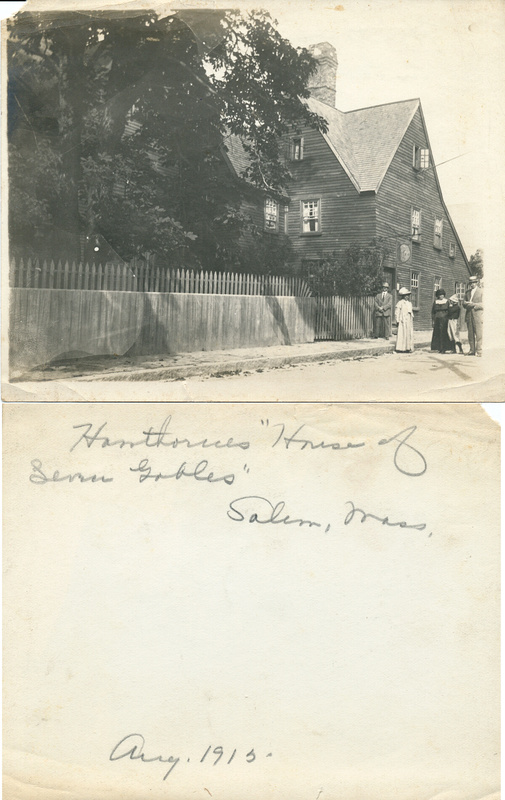 Hawthornes "House of
Seven Gables"
Salem, Mass.
Aug. 1915.